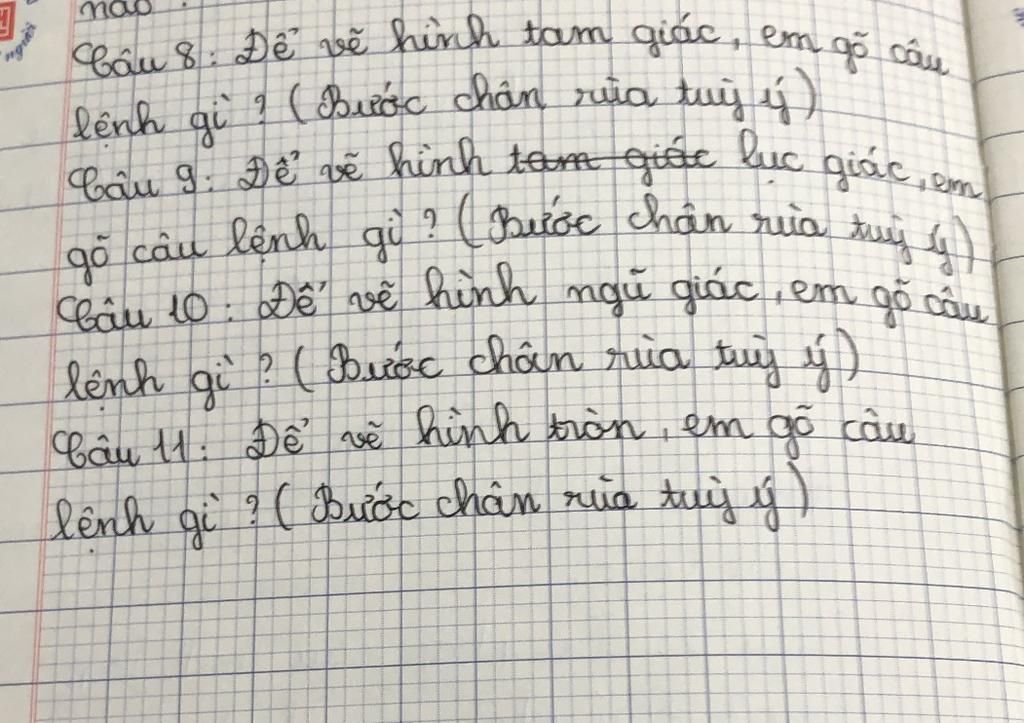 mào.
Câu 8: Để vẽ hình tam giác, em gõ câu
lệnh gì? (Bước chân rùa tuỳ ý)
Câu 9: Để vẽ hình tam giác lục giác, em
gõ câu lệnh gì? (Bước chân rùa tuỳ ý)
Câu 10: Để vẽ hình ngũ giác, em gõ câu
lệnh gì? (Bước chân rùa tuỳ ý)
Câu 11: Để vẽ hình tròn, em gõ câu
lệnh gì? (Bước chân rùa tuỳ ý)